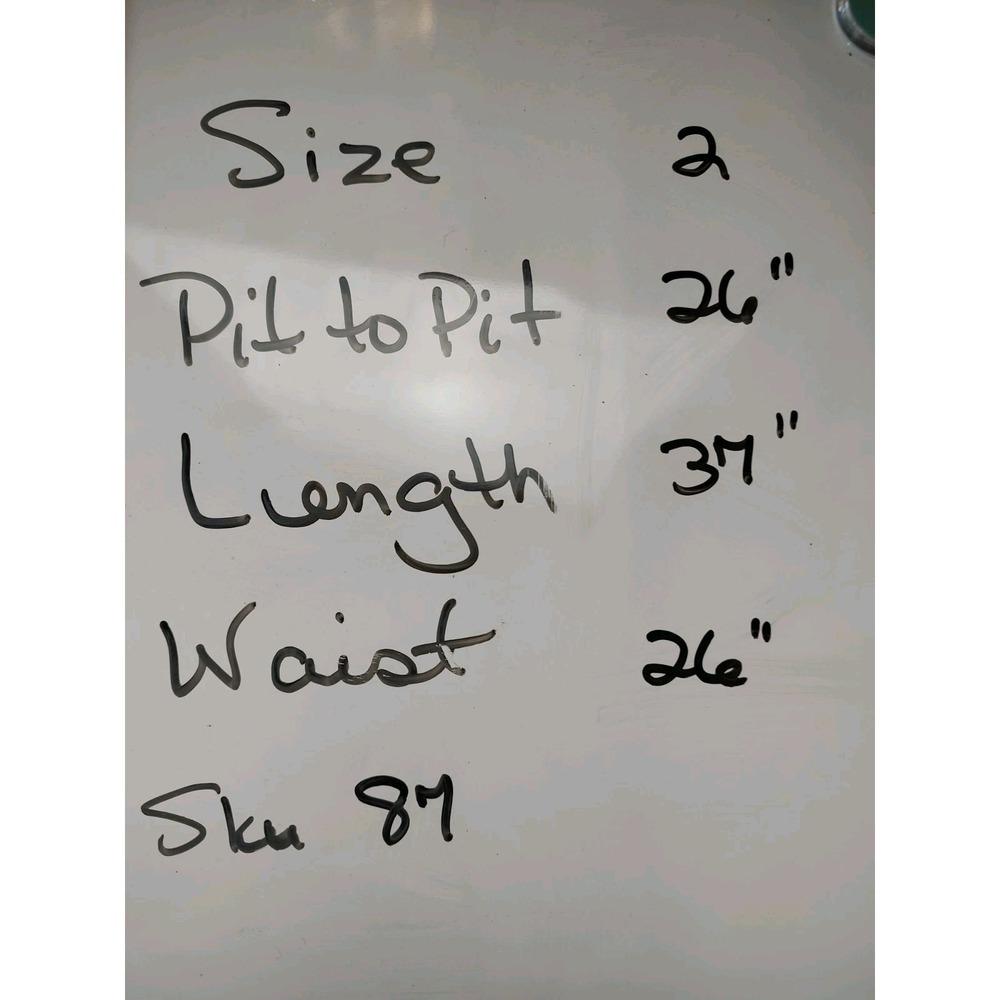 Size 2
Pit to Pit 26"
Length 37"
Waist 26"
Sku 87